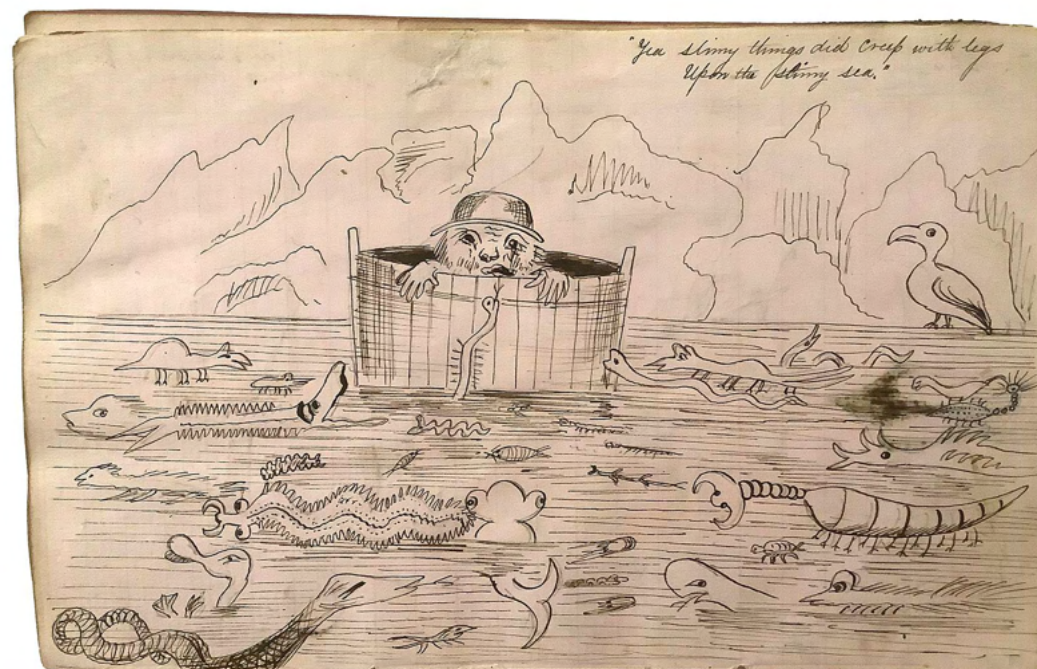 "Yea slimy things did creep with legs
Upon the slimy sea."